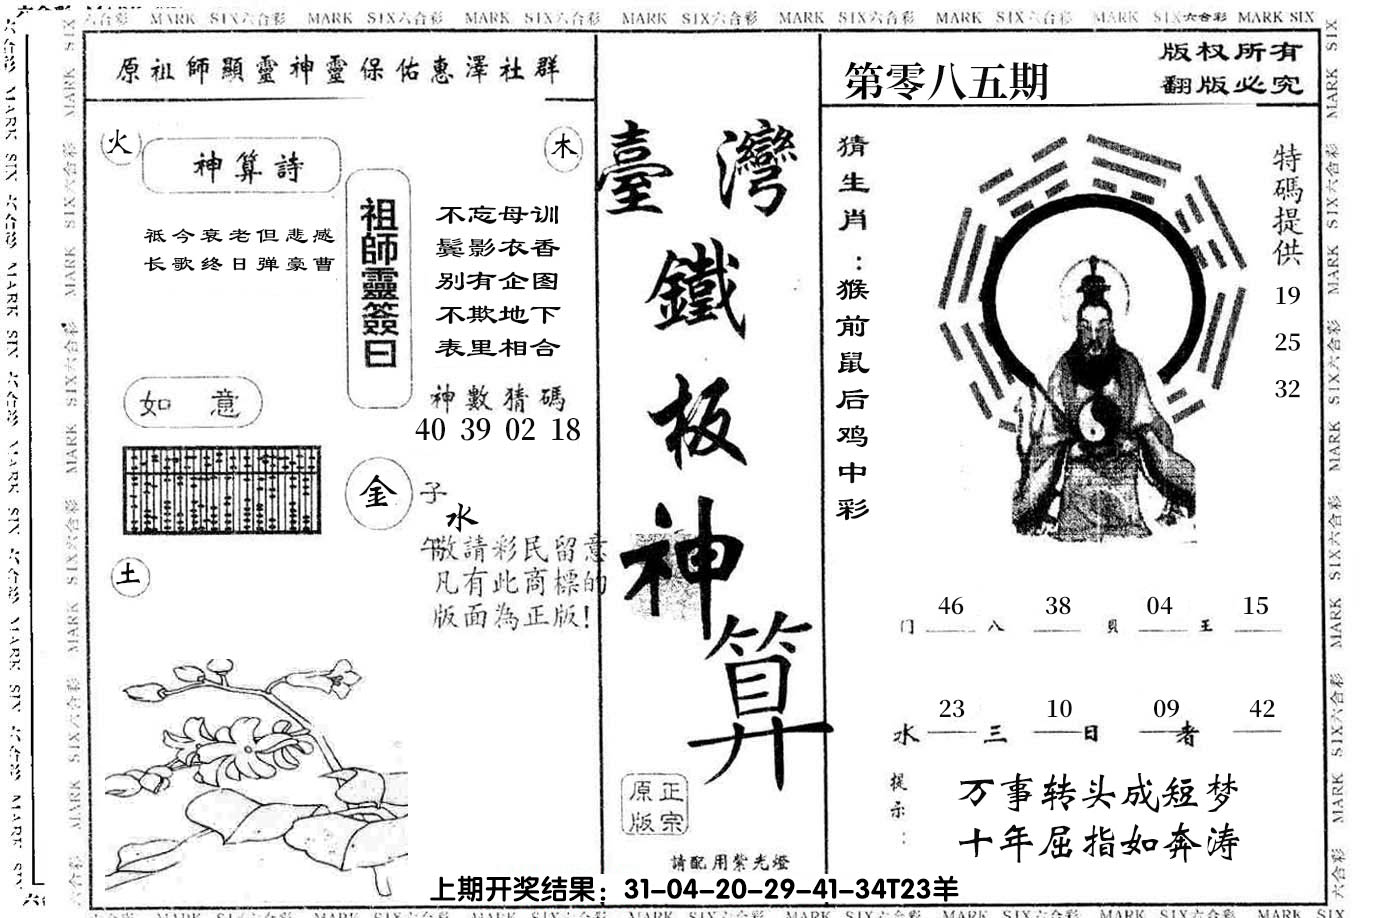 MARK SIX六合彩 MARK SIX六合彩 MARK SIX六合彩 MARK SIX六合彩 MARK SIX六合彩 MARK SIX六合彩 MARK SIX六合彩 MARK SIX
原祖師顯靈神靈保佑惠澤社群
火
神算詩
木
祗今衰老但悲感
长歌终日弹豪曹
祖師靈簽曰
不忘母训
鬓影衣香
别有企图
不欺地下
表里相合
如意
神數猜碼
40 39 02 18
金
子
水
午
敬請彩民留意
凡有此商標的
版面為正版!
土
臺灣
鐵
板
神
算
正宗
原版
請配用紫光燈
第零八五期
版权所有
翻版必究
猜生肖:猴前鼠后鸡中彩
特碼提供
19
25
32
46 38 04 15
门 八 贝 王
23 10 09 42
水 三 日 者
提示:
万事转头成短梦
十年屈指如奔涛
上期开奖结果：31-04-20-29-41-34T23羊